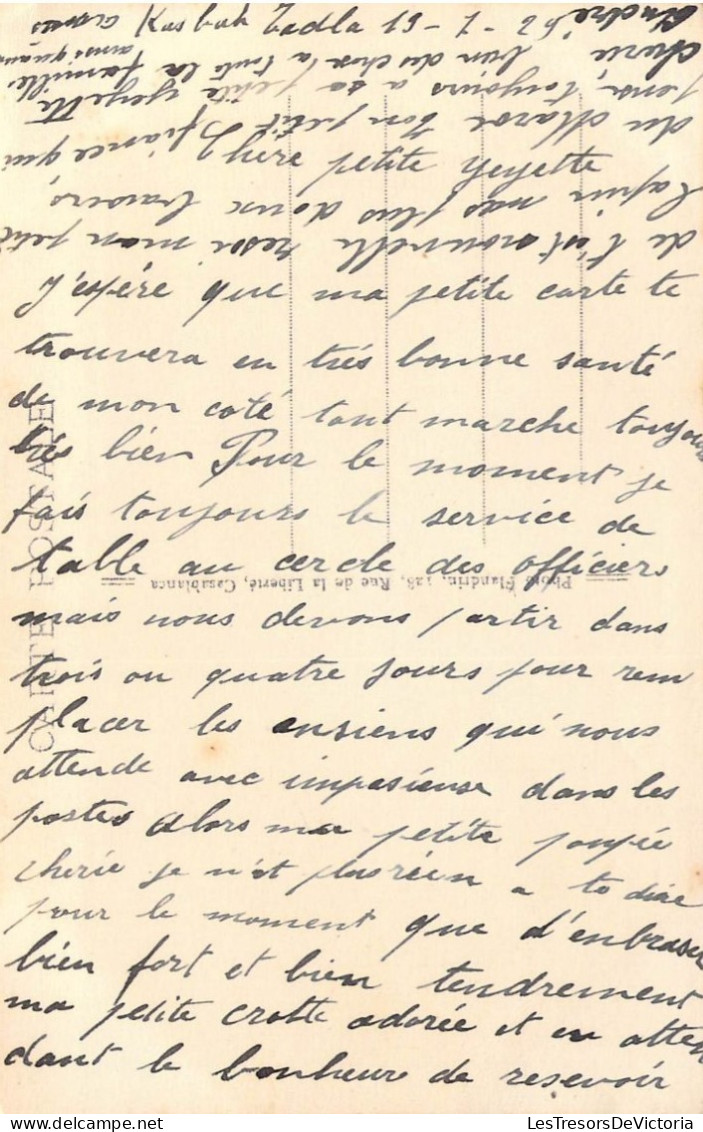 Kasbah Tadla 19-1-
Chère petite yeyette
J'espère que ma petite carte te
trouvera en très bonne santé
de mon coté tout marche toujours
très bien Pour le moment je
fais toujours le service de
table au cercle des officiers
mais nous devons partir dans
trois ou quatre jours pour rem
placer les ansiens qui nous
attende avec impasiense dans les
postes alors ma petite poupée
cherie je n'ét plus rien a te dire
pour le moment que d'enbraser
bien fort et bien tendrement
ma petite crotte adorée et en atten
dant le bonheure de resevoir
de t'est nouvelle resoi mon petit
lapin mes plus doux baisers,
fiancé qui
du Maroc Ton petit
pense toujours a sa petite yeyette
cherie bon du chose a toute la famille
ainsi qu'aux
André
CARTE POSTALE
Photo Flandrin, 128, Rue de la Liberté, Casablanca
LesTresorsDeVictoria.com